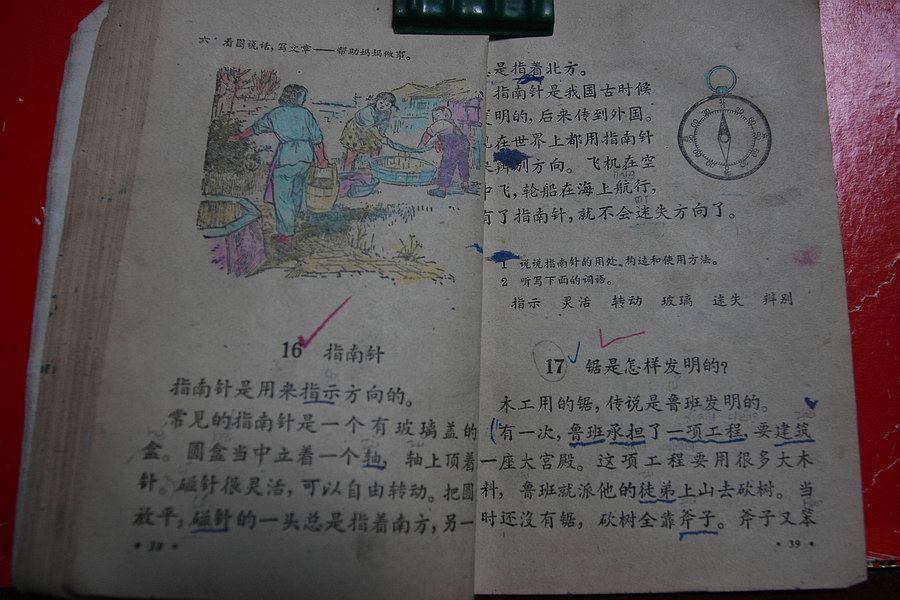 六 看图说话，写文章——帮助妈妈做事。
16 指南针
指南针是用来指示方向的。
常见的指南针是一个有玻璃盖的
盒。圆盒当中立着一个轴，轴上顶着
针。磁针很灵活，可以自由转动。把圆
放平，磁针的一头总是指着南方，另一
38
是指着北方。
指南针是我国古时候
明的，后来传到外国。
在世界上都用指南针
辨别方向。飞机在空
中飞，轮船在海上航行，
有了指南针，就不会迷失方向了。
1 说说指南针的用处、构造和使用方法。
2 听写下面的词语。
指示 灵活 转动 玻璃 迷失 辩别
17 锯是怎样发明的？
木工用的锯，传说是鲁班发明的。
有一次，鲁班承担了一项工程，要建筑
一座大宫殿。这项工程要用很多大木
料，鲁班就派他的徒弟上山去砍树。当
时还没有锯，砍树全靠斧子。斧子又笨
39